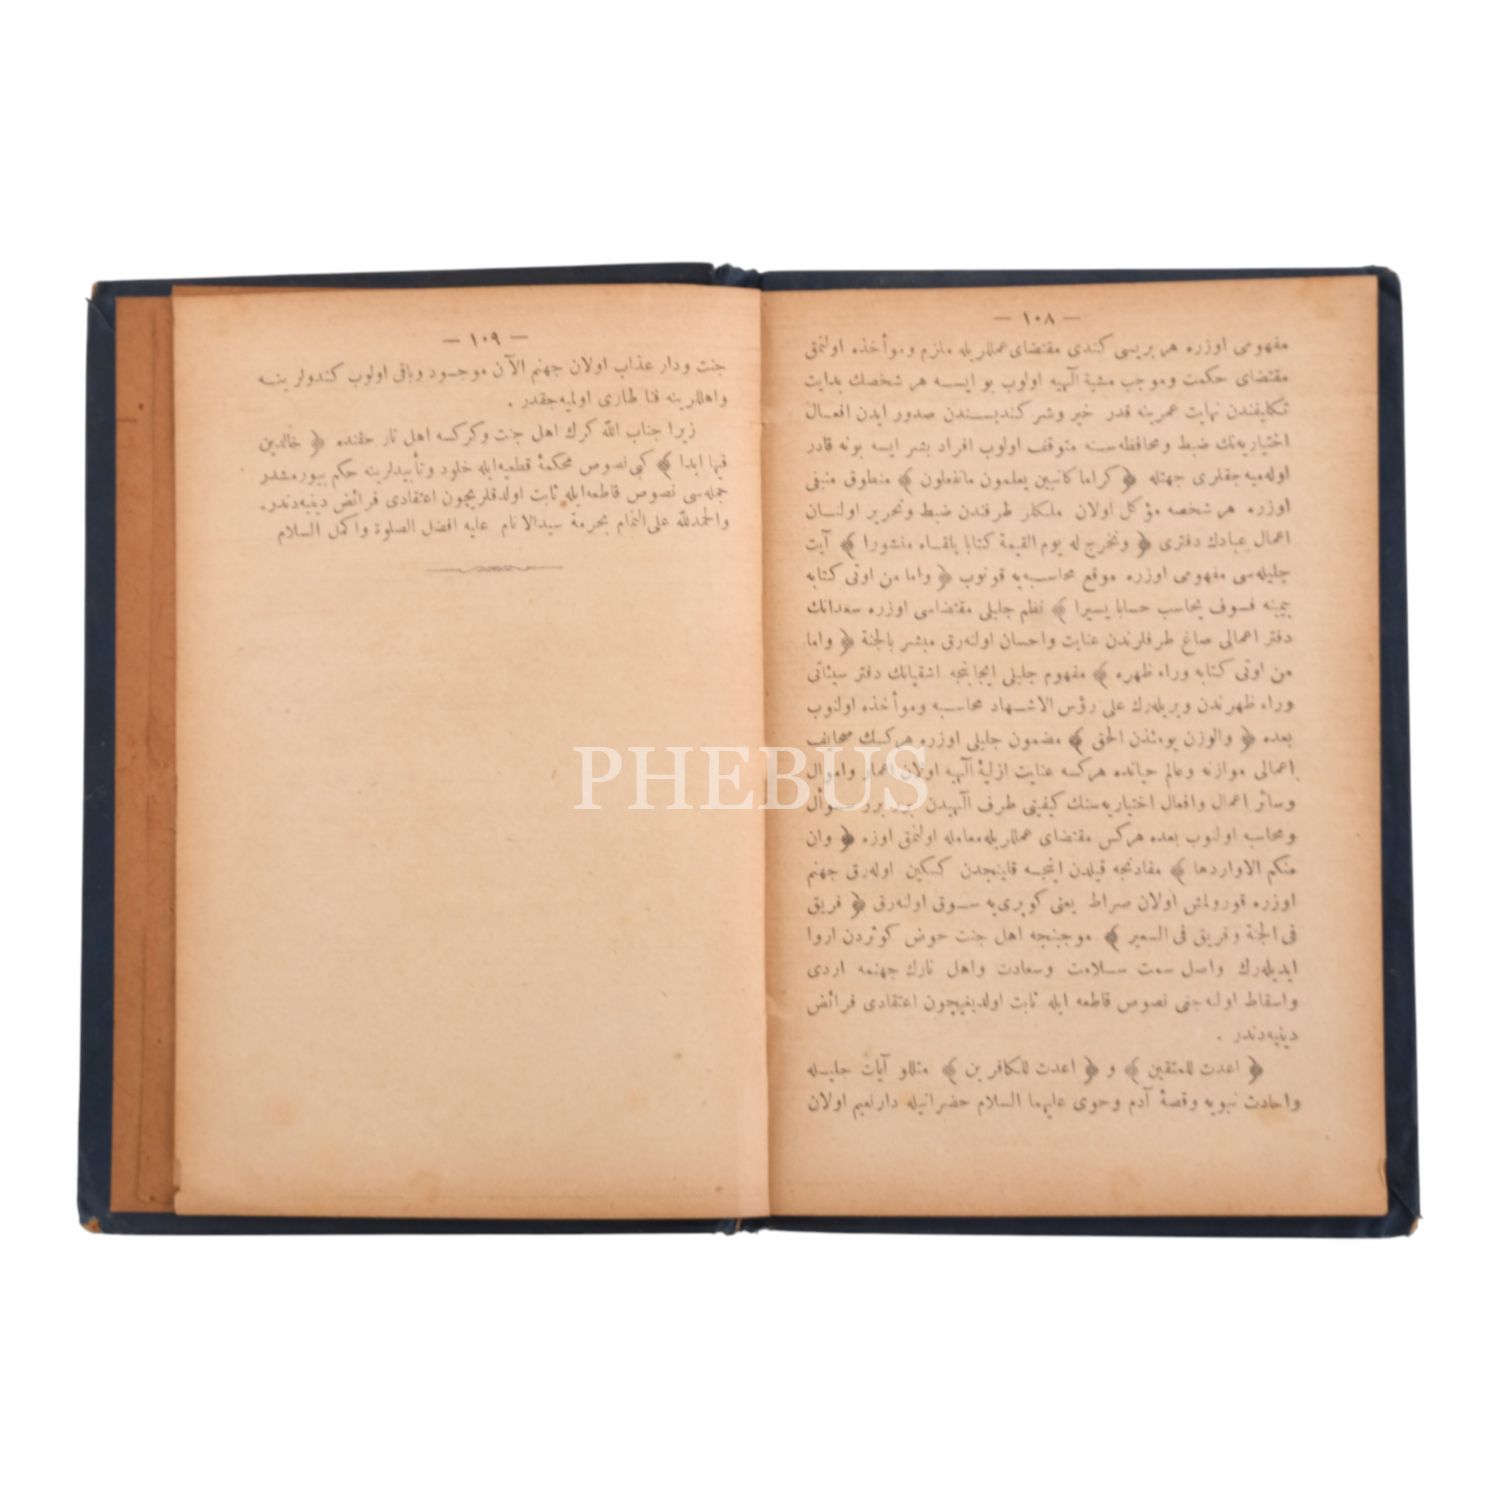 — ١٠٨ —
مفهومی اوزره هر بریسی کندی مقتضای عمللریله ملزم ومؤاخذه اولنمق
مقتضای حکمت وموجب مشیة آلهیه اولوب بو ایسه هر شخصك بدایت
تکلیفندن نهایت عمرینه قدر خیر وشر کندیسندن صدور ایدن افعال
اختیاریه‌نك ضبط ومحافظه‌سنه متوقف اولوب افراد بشر ایسه بونه قادر
اوله‌میه‌جقلری جهتله ﴿ کراما کاتبین یعلمون ماتفعلون ﴾ منطوق منیفی
اوزره هر شخصه مؤکل اولان ملکلر طرفندن ضبط وتحریر اولنان
اعمال عبادك دفتری ﴿ ونخرج له یوم القیمة کتابا یلقاه منشورا ﴾ آیت
جلیله‌سی مفهومی اوزره موقع محاسبه‌یه قونوب ﴿ واما من اوتی کتابه
بیمینه فسوف یحاسب حسابا یسیرا ﴾ نظم جلیلی مقتضاسی اوزره سعدانك
دفتر اعمالی صاغ طرفلرندن عنایت واحسان اولنه‌رق مبشر بالجنة ﴿ واما
من اوتی کتابه وراء ظهره ﴾ مفهوم جلیلی ایجابنجه اشقیانك دفتر سیئاتی
وراء ظهرندن ویریله‌رك علی رؤس الاشهاد محاسبه ومؤاخذه اولنوب
بعده ﴿ والوزن یومئذن الحق ﴾ مضمون جلیلی اوزره هرکسك صحائف
اعمالی موازنه وعالم حیاتده هرکسه عنایت ازلیهٔ آلهیه اولان اعمار واموال
وسائر اعمال وافعال اختیاریه‌سنك کیفیتی طرف آلهیدن برر برر سؤال
ومحاسبه اولنوب بعده هرکس مقتضای عمللریله معامله اولنمق اوزه ﴿ وان
منکم الاواردها ﴾ مفادنجه قیلدن اینجه قلینجدن کسکین اوله‌رق جهنم
اوزره قورولمش اولان صراط یعنی کوپری‌یه سوق اولنه‌رق ﴿ فریق
فی الجنة وفریق فی السعیر ﴾ موجبنجه اهل جنت حوض کوثردن اروا
ایدیله‌رك واصل سمت سلامت وسعادت واهل نارك جهنمه اردی
واسقاط اوله‌جغی نصوص قاطعه ایله ثابت اولدیغیچون اعتقادی فرائض
دینیه‌دندر .
﴿ اعدت للمتقین ﴾ و ﴿ اعدت للکافرین ﴾ مثللو آیات جلیله
واحادث نبویه وقصهٔ آدم وحوی علیهما السلام حضراتیله دار نعیم اولان
— ١٠٩ —
جنت ودار عذاب اولان جهنم الآن موجود وباقی اولوب کندولرینه
واهللرینه فنا طاری اولمیه‌جقدر .
زیرا جناب الله کرك اهل جنت وکرکسه اهل نار حقنده ﴿ خالدین
فیها ابدا ﴾ کبی نصوص محکمهٔ قطعیه ایله خلود وتأبیدلرینه حکم بیورمشدر
جمله‌سی نصوص قاطعه ایله ثابت اولدقلریچون اعتقادی فرائض دینیه‌دندر.
والحمدلله علی التمام بحرمة سیدالانام علیه افضل الصلوة واکمل السلام
PHEBUS